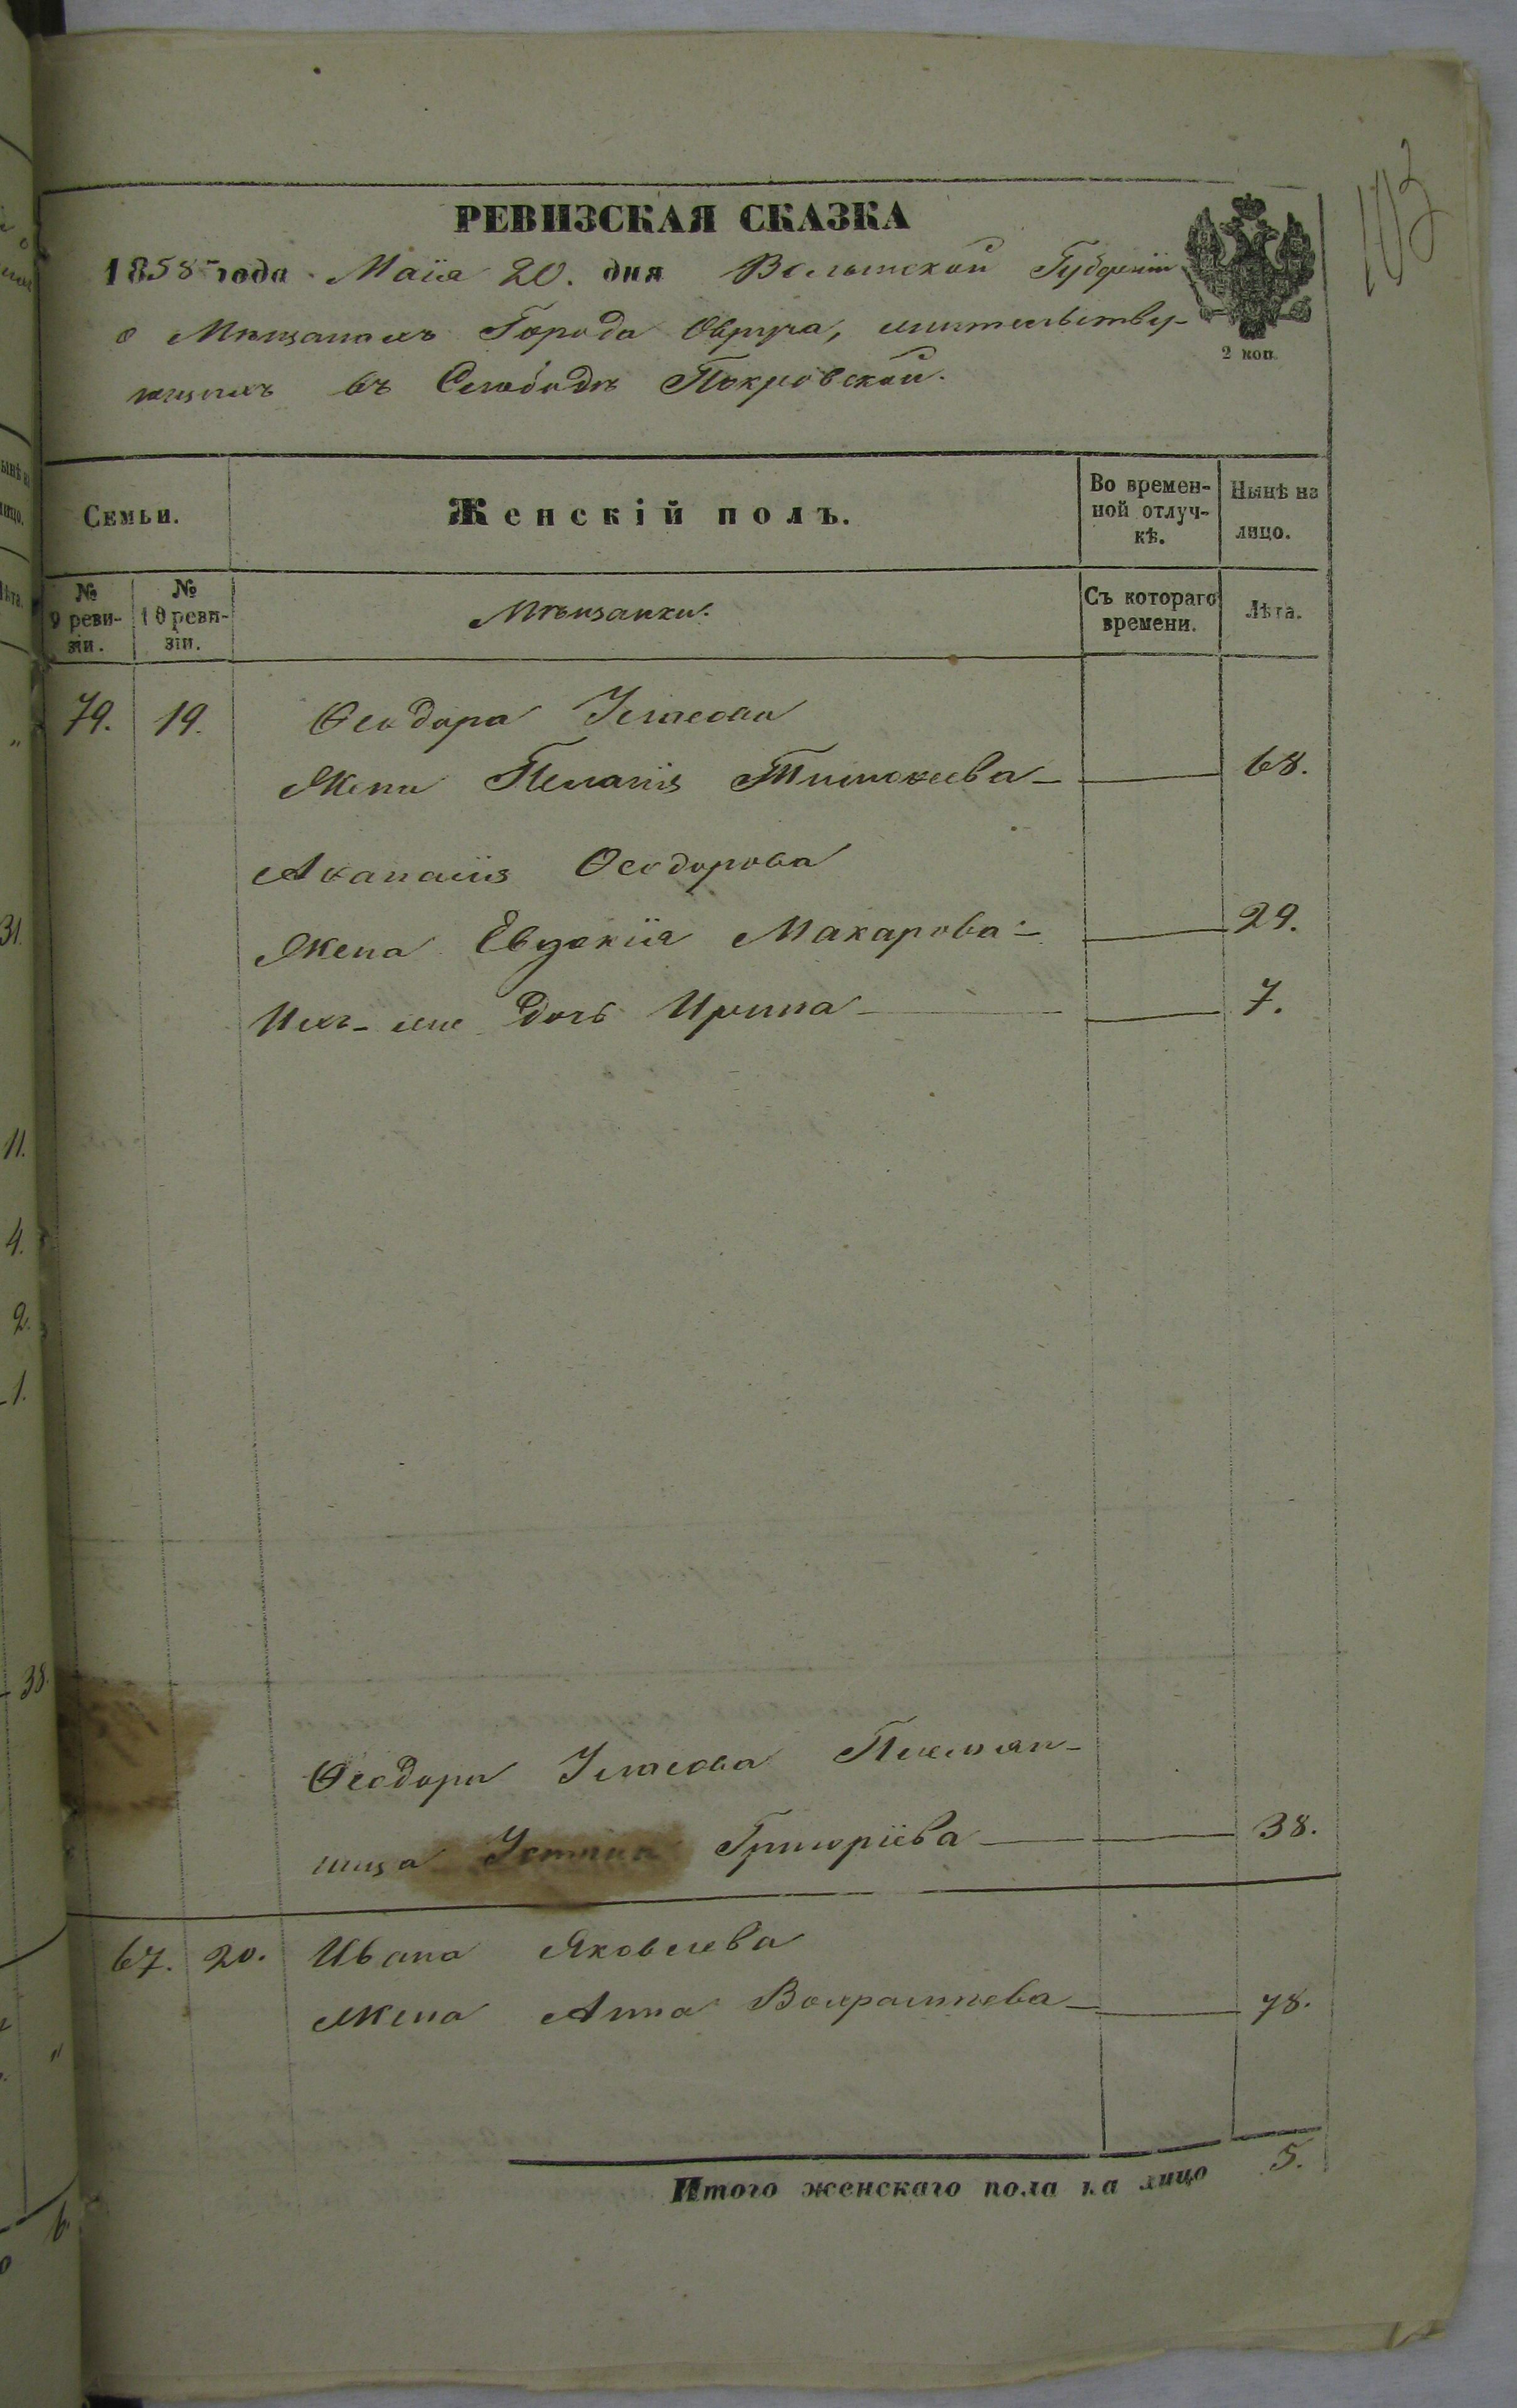 103
РЕВИЗСКАЯ СКАЗКА
1858 года Маія 20. дня Волынской Губерніи
2 коп.
о Мѣщанахъ Города Овруча, жительству-
ющихъ въ Слободѣ Покровской.
Семьи.
Женскій полъ.
Во времен-
ной отлуч-
кѣ.
Нынѣ на
лицо.
№
9 реви-
зіи.
№
10 реви-
зіи.
Мѣщанки.
Съ котораго
времени.
Лѣта.
79. 19. Ѳеодора
Жена Пелагія Тимоѳеева 68.
Аѳанасія Ѳеодорова
Жена Евдокія Макарова 29.
Ихъ-же дочь Ирина 7.
Ѳеодора Племян-
ница Устина Григоріева 38.
67. 20. Ивана Яковлева
Жена Анна 78.
Итого женскаго пола на лицо 5.
31.
11.
4.
2.
1.
38.
6.